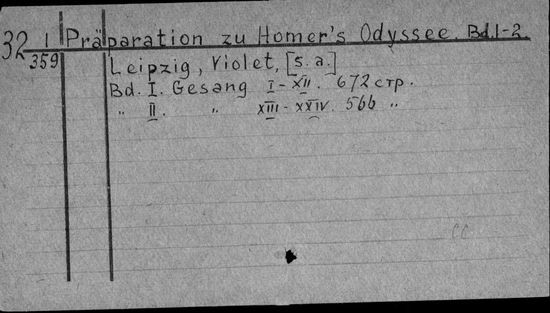 32 1 Präparation zu Homer's Odyssee. Bd.1-2.
359 Leipzig, Violet, [s. a.]
Bd. I. Gesang I-XII. 672 стр.
„ II. „ XIII-XXIV. 566 „
CC